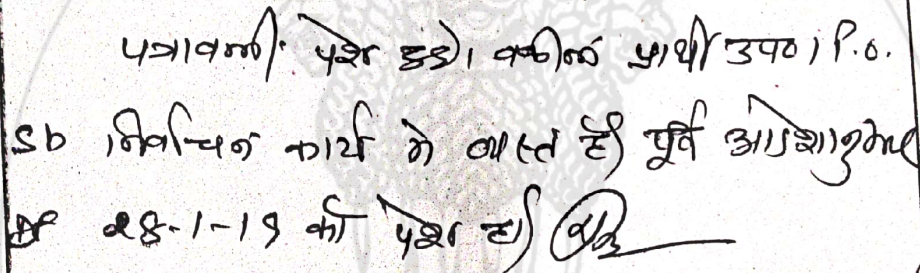 पत्रावली पेश हुई। वकील प्रार्थी उप०। P.O.
Sb निर्वाचन कार्य मे व्यस्त है। पूर्व आदेशानुसार
28-1-19 को पेश हो।